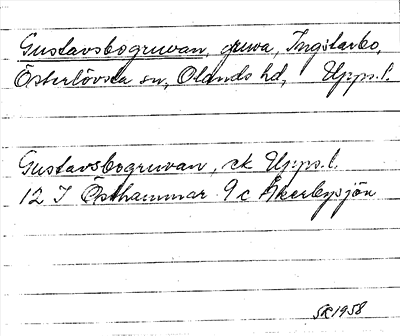 Gustavsbogruvan, gruva, Ingstarbo,
Österlövsta sn, Olands hd, Upps.l.
Gustavsbogruvan, ek Upps.l.
12 I Östhammar 9c Åkerbysjön
SR 1958